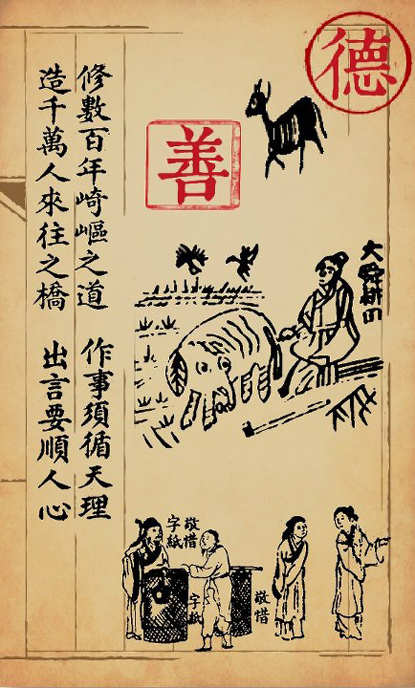 德
善
大舜耕田
修數百年崎嶇之道 作事須循天理
造千萬人來往之橋 出言要順人心
敬惜
字紙
敬惜
字紙